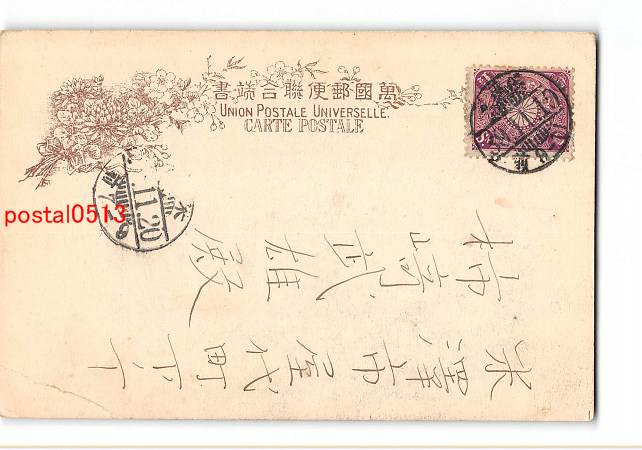 書端合聯便郵國萬
UNION POSTALE UNIVERSELLE.
CARTE POSTALE
postal0513
11 20
米澤市屋代町下丁
柿﨑武雄殿